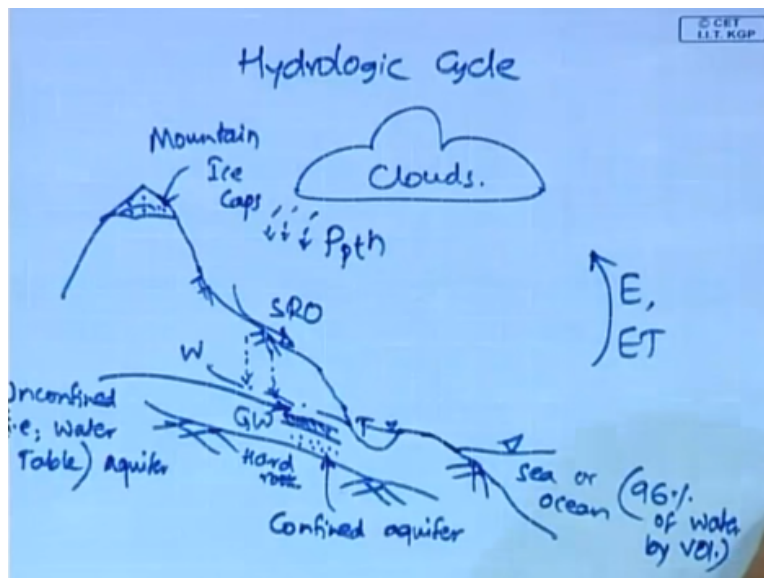 © CET
I.I.T. KGP
Hydrologic Cycle
Mountain
Ice
Caps
Clouds.
Ppth
E,
ET
SRO
W
T
GW
Unconfined
(i.e; water
Table) aquifer
Hard
rock
Confined aquifer
sea or
ocean
(96%
of water
by vol.)